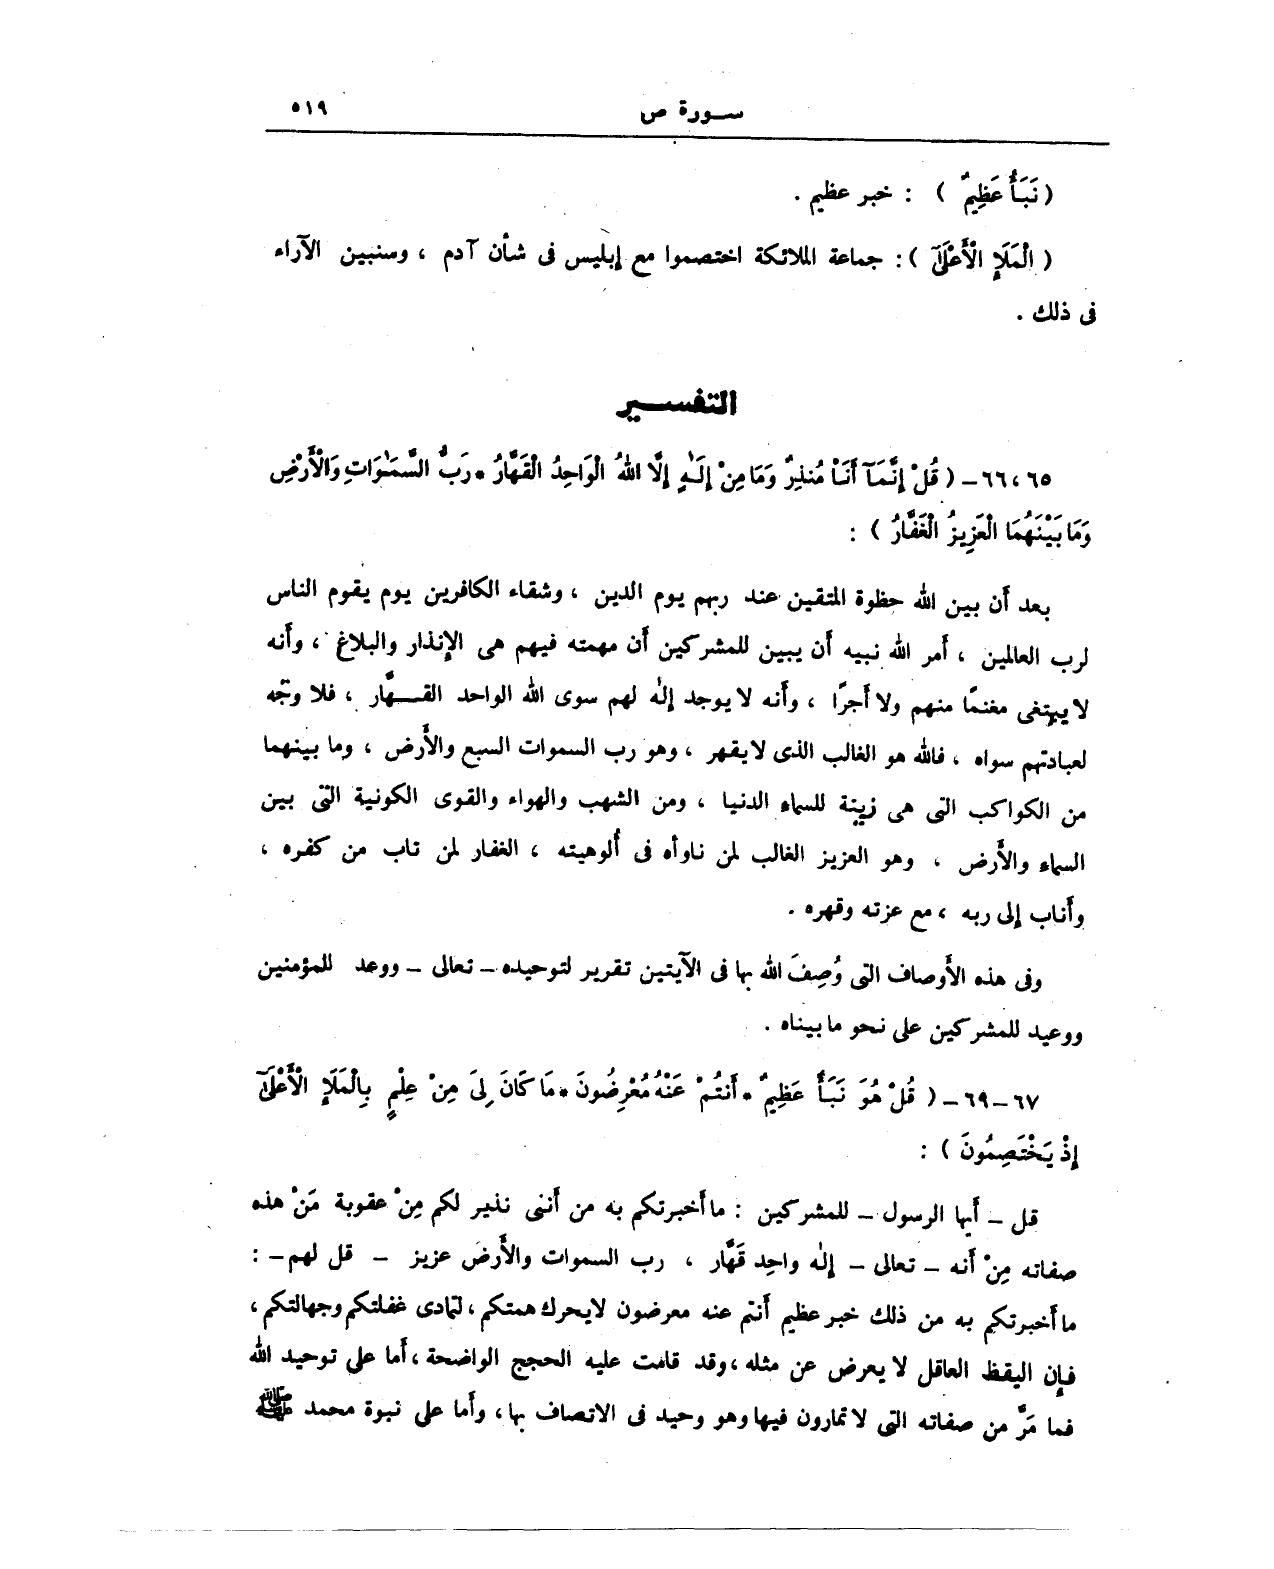 سورة ص ٥١٩
( نَبَأٌ عَظِيمٌ ) : خبر عظيم .
( الْمَلَإِ الْأَعْلَىٰٓ ) : جماعة الملائكة اختصموا مع إبليس فى شأن آدم ، وسنبين الآراء
فى ذلك .
التفسير
٦٦،٦٥ – ( قُلْ إِنَّمَآ أَنَا۠ مُنذِرٌ وَمَا مِنْ إِلَـٰهٍ إِلَّا اللهُ الْوَاحِدُ الْقَهَّارُ * رَبُّ السَّمَـٰوَاتِ وَالْأَرْضِ
وَمَا بَيْنَهُمَا الْعَزِيزُ الْغَفَّارُ ) :
بعد أن بين الله حظوة المتقين عند ربهم يوم الدين ، وشقاء الكافرين يوم يقوم الناس
لرب العالمين ، أمر الله نبيه أن يبين للمشركين أن مهمته فيهم هى الإنذار والبلاغ ، وأنه
لا يبتغى مغنمًا منهم ولا أجرًا ، وأنه لا يوجد إلٰه لهم سوى الله الواحد القــهَّار ، فلا وجه
لعبادتهم سواه ، فالله هو الغالب الذى لا يقهر ، وهو رب السموات السبع والأَرض ، وما بينهما
من الكواكب التى هى زينة للسماء الدنيا ، ومن الشهب والهواء والقوى الكونية التى بين
السماء والأَرض ، وهو العزيز الغالب لمن ناوأه فى أُلوهيته ، الغفار لمن تاب من كفره ،
وأَناب إلى ربه ، مع عزته وقهره .
وفى هذه الأَوصاف التى وُصِفَ الله بها فى الآيتين تقرير لتوحيده – تعالى – ووعد للمؤمنين
ووعيد للمشركين على نحو ما بيناه .
٦٧–٦٩ – ( قُلْ هُوَ نَبَأٌ عَظِيمٌ * أَنتُمْ عَنْهُ مُعْرِضُونَ * مَا كَانَ لِىَ مِنْ عِلْمٍ بِالْمَلَإِ الْأَعْلَىٰٓ
إِذْ يَخْتَصِمُونَ ) :
قل – أَيها الرسول – للمشركين : ما أَخبرتكم به من أَننى نذير لكم مِنْ عقوبة مَنْ هذه
صفاته مِنْ أَنه – تعالى – إلٰه واحِد قَهَّار ، رب السموات والأَرض عزيز – قل لهم – :
ما أَخبرتكم به من ذلك خبر عظيم أَنتم عنه معرضون لا يحرك همتكم ، لتمادى غفلتكم وجهالتكم ،
فإِن اليقظ العاقل لا يعرض عن مثله ، وقد قامت عليه الحجج الواضحة ، أَما على توحيد الله
فما مَرَّ من صفاته التى لا تمارون فيها وهو وحيد فى الاتصاف بها ، وأَما على نبوة محمد ﷺ